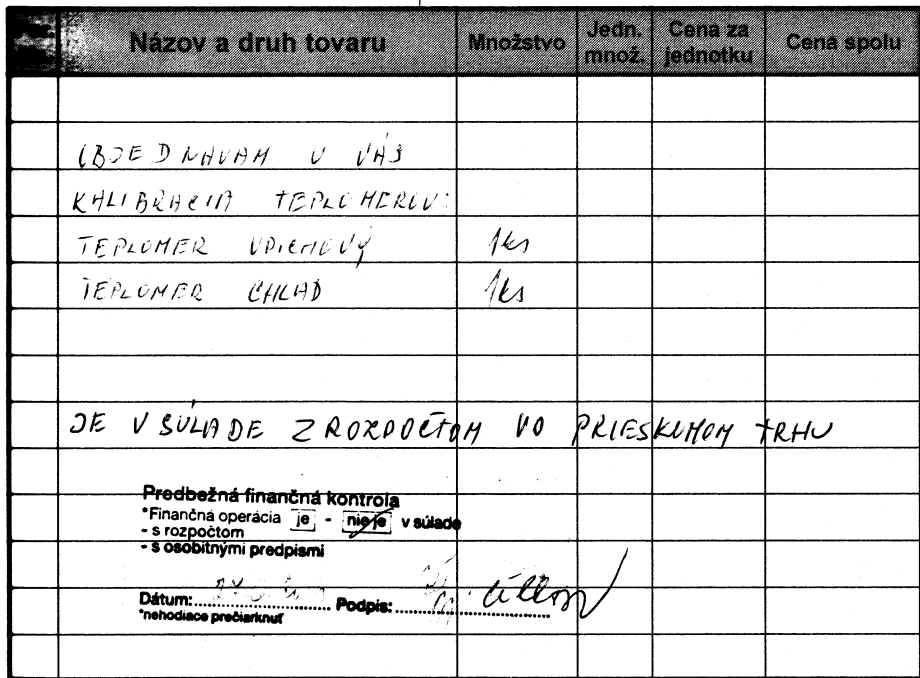 Názov a druh tovaru Množstvo Jedn. množ. Cena za jednotku Cena spolu
OBJEDNAVAM U VÁS
KALIBRACIA TEPLOMEROV:
TEPLOMER VPICHOVÝ 1ks
TEPLOMER CHLAD 1ks
JE V SÚLADE Z ROZPOČTOM VO PRIESKUMOM TRHU
Predbežná finančná kontrola
*Finančná operácia je - nie je v súlade
- s rozpočtom
- s osobitnými predpismi
Dátum: Podpis:
*nehodiace prečiarknuť